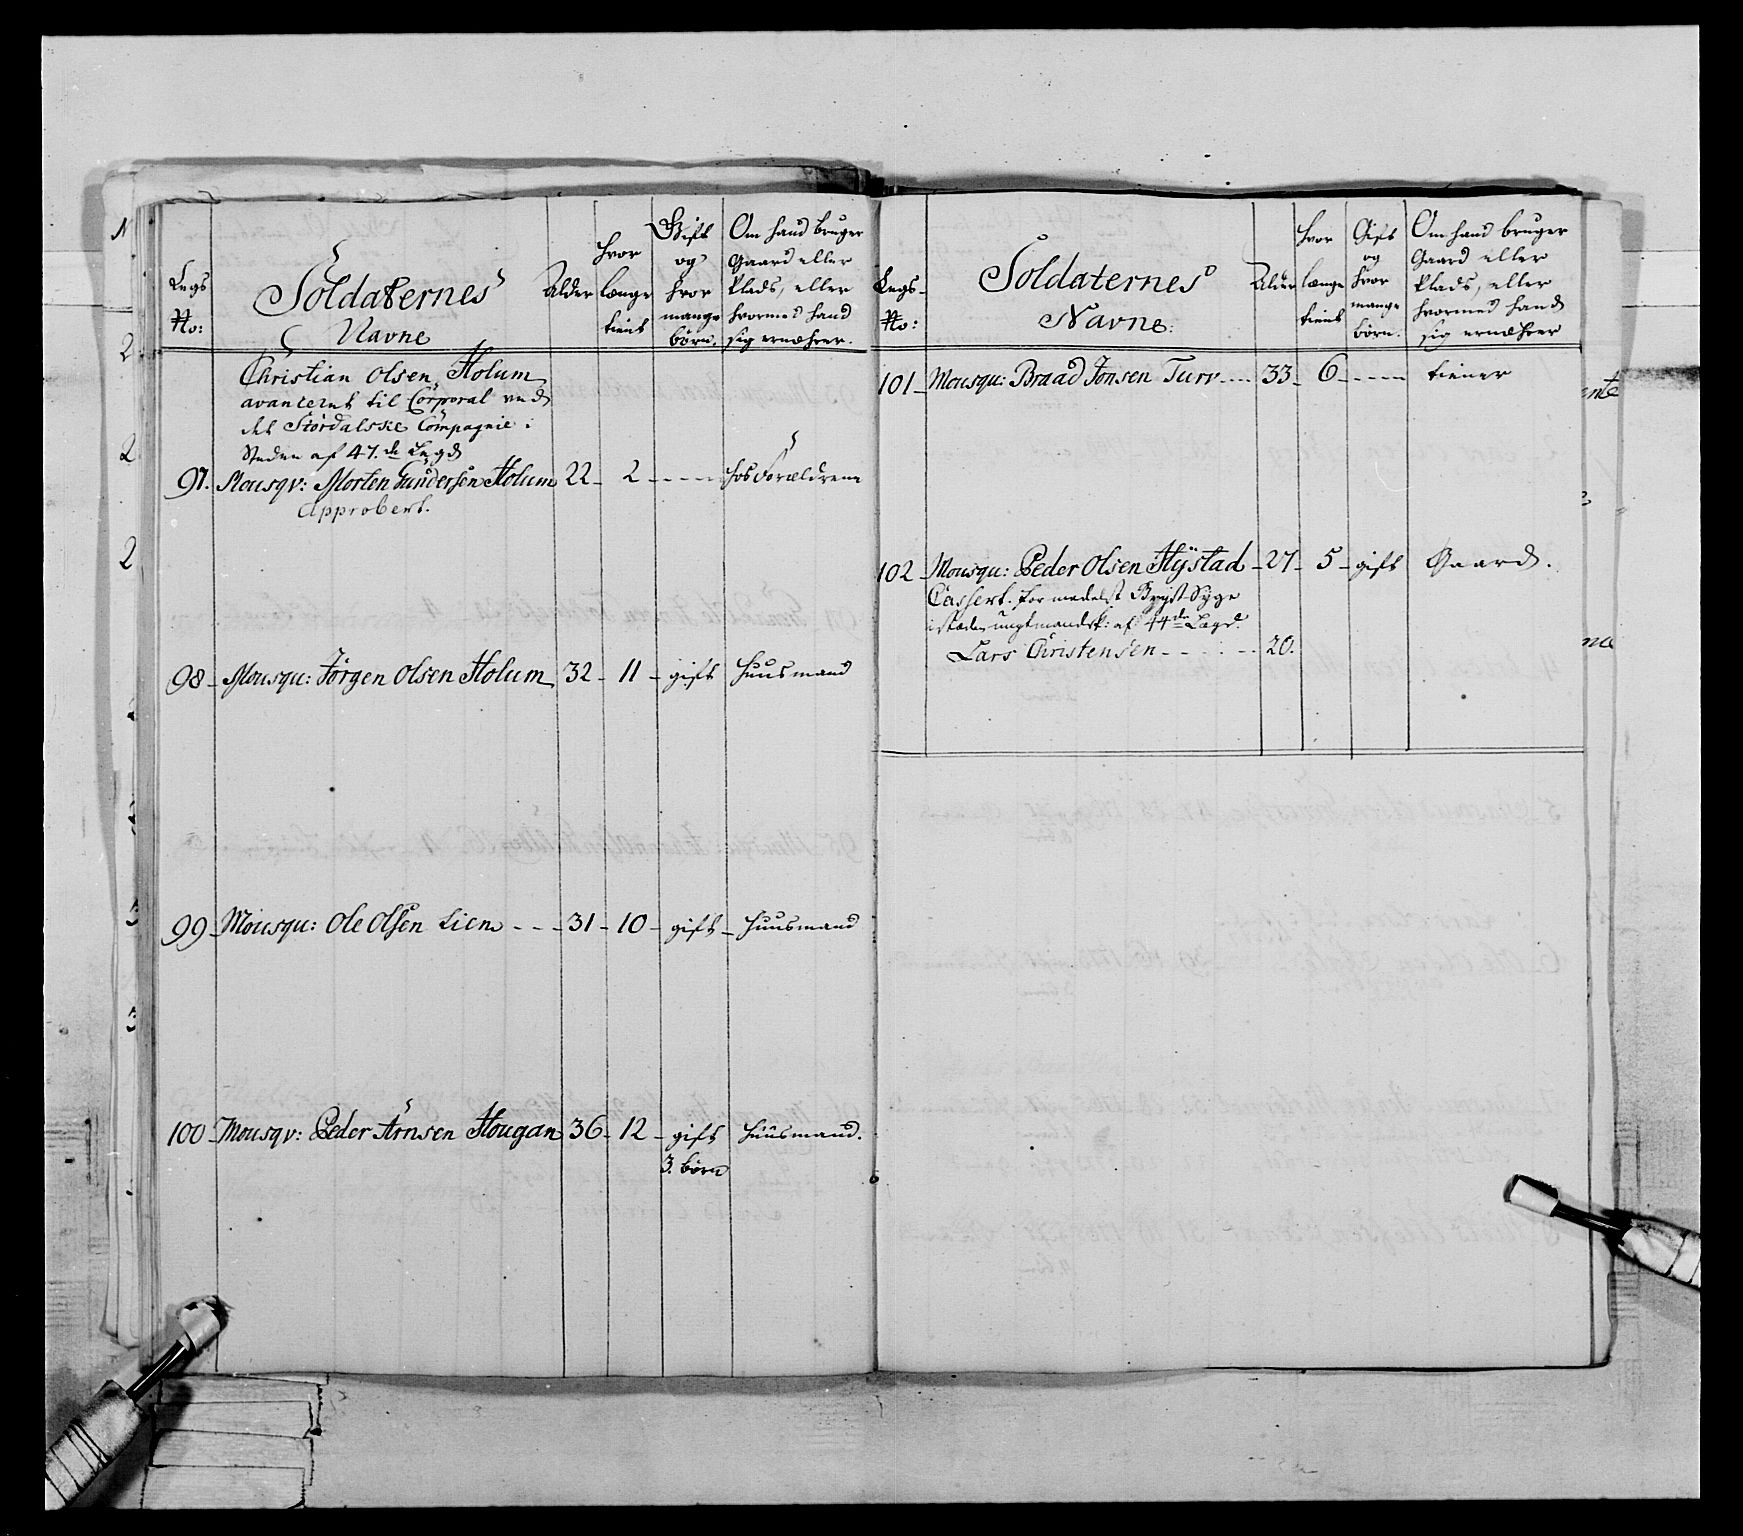 Legs No: Soldaternes Navne Alder hvor længe tient Gift og hvor mange børn. Om hand bruger Gaard eller Plads, eller hvormed hand sig ernæhrer.
Christian Olsen Holum
avanceret til Corporal ved
det Stordalske Compagnie i
Steden af 47.de Legd
97. Mousqv: Morten Gundersen Holum 22 - 2 - - - - hos Forældrene
Approbert.
98 - Mousqu: Jørgen Olsen Holum 32 - 11 - gift Huusmand
99 - Mousqu: Ole Olsen Lien - - - 31 - 10 - gift - Huusmand
100 - Mousqv: Peder Arnsen Hougan 36 - 12 - gift Huusmand.
3. børn
Legs - No: Soldaternes Navne: Alder hvor længe tient Gift og hvor mange børn. Om hand bruger Gaard eller Plads, eller hvormed hand sig ernæhrer
101 - Mousqu: Braad Jonsen Turv - - - 33 - 6 - - - - - tiener
102 - Mousqu: Peder Olsen Hÿstad - 27 - 5 - gift Gaard.
Cassert formedelst Brÿst Sÿge
isteden ungtmandsk: af 44de Lægd.
Lars Christensen - - - - - 20.